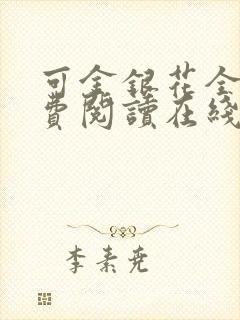 可金銀花全
費閱讀在綫
李素堯